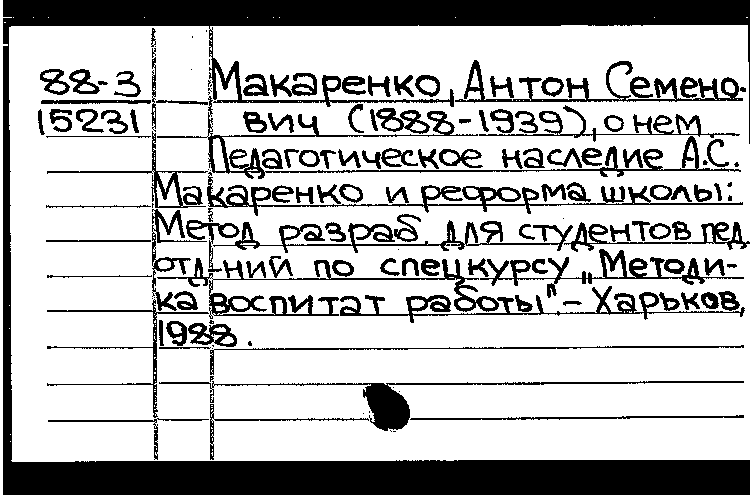 88-3 Макаренко, Антон Семено-
15231 вич (1888-1939), о нем
Педагогическое наследие А.С.
Макаренко и реформа школы:
Метод разраб. для студентов пед.
отд-ний по спецкурсу „Методи-
ка воспитат работы". - Харьков,
1988.